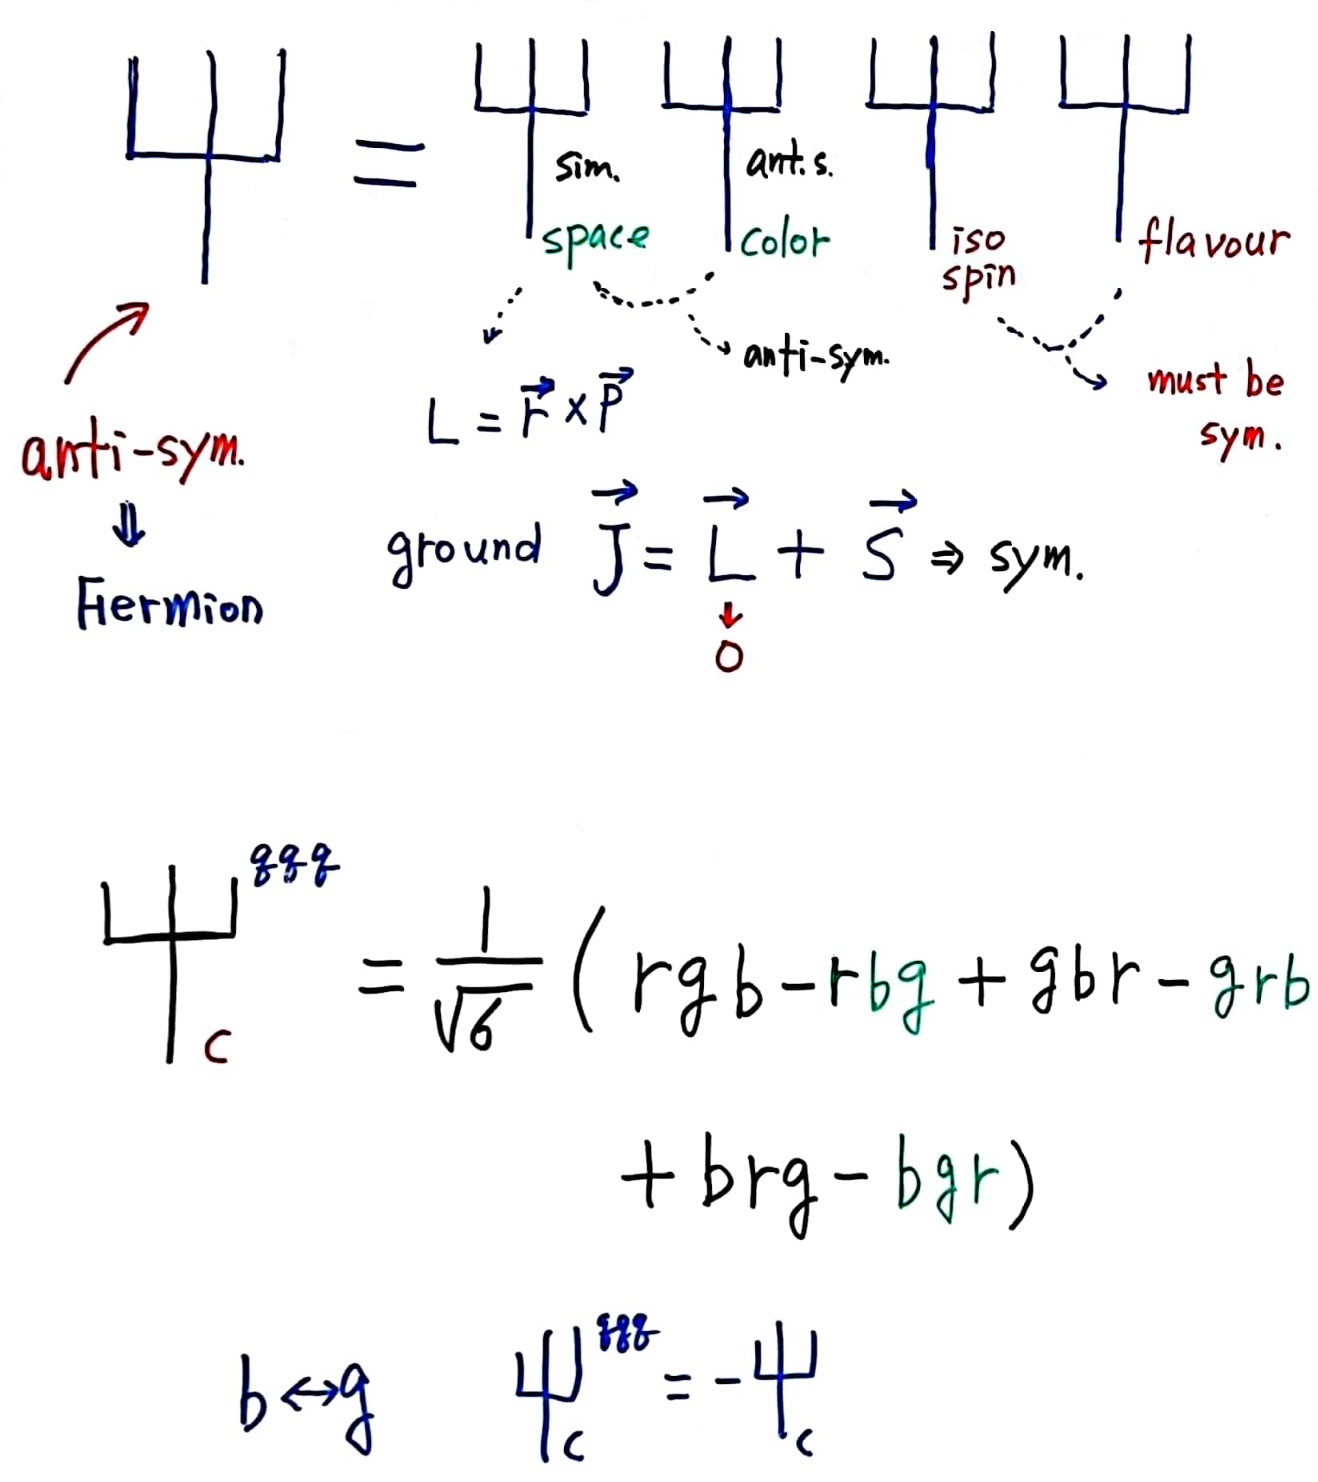 Ψ = Ψ Ψ Ψ Ψ
sim. ant.s.
space color iso spin flavour
anti-sym.
must be
sym.
L = r⃗ × P⃗
anti-sym.
⇓
Fiermion
ground J⃗ = L⃗ + S⃗ ⇒ sym.
↓
0
Ψ_c^{qqq} = 1/√6 ( rgb - rbg + gbr - grb
+ brg - bgr)
b ↔ g Ψ_c^{qqq} = - Ψ_c